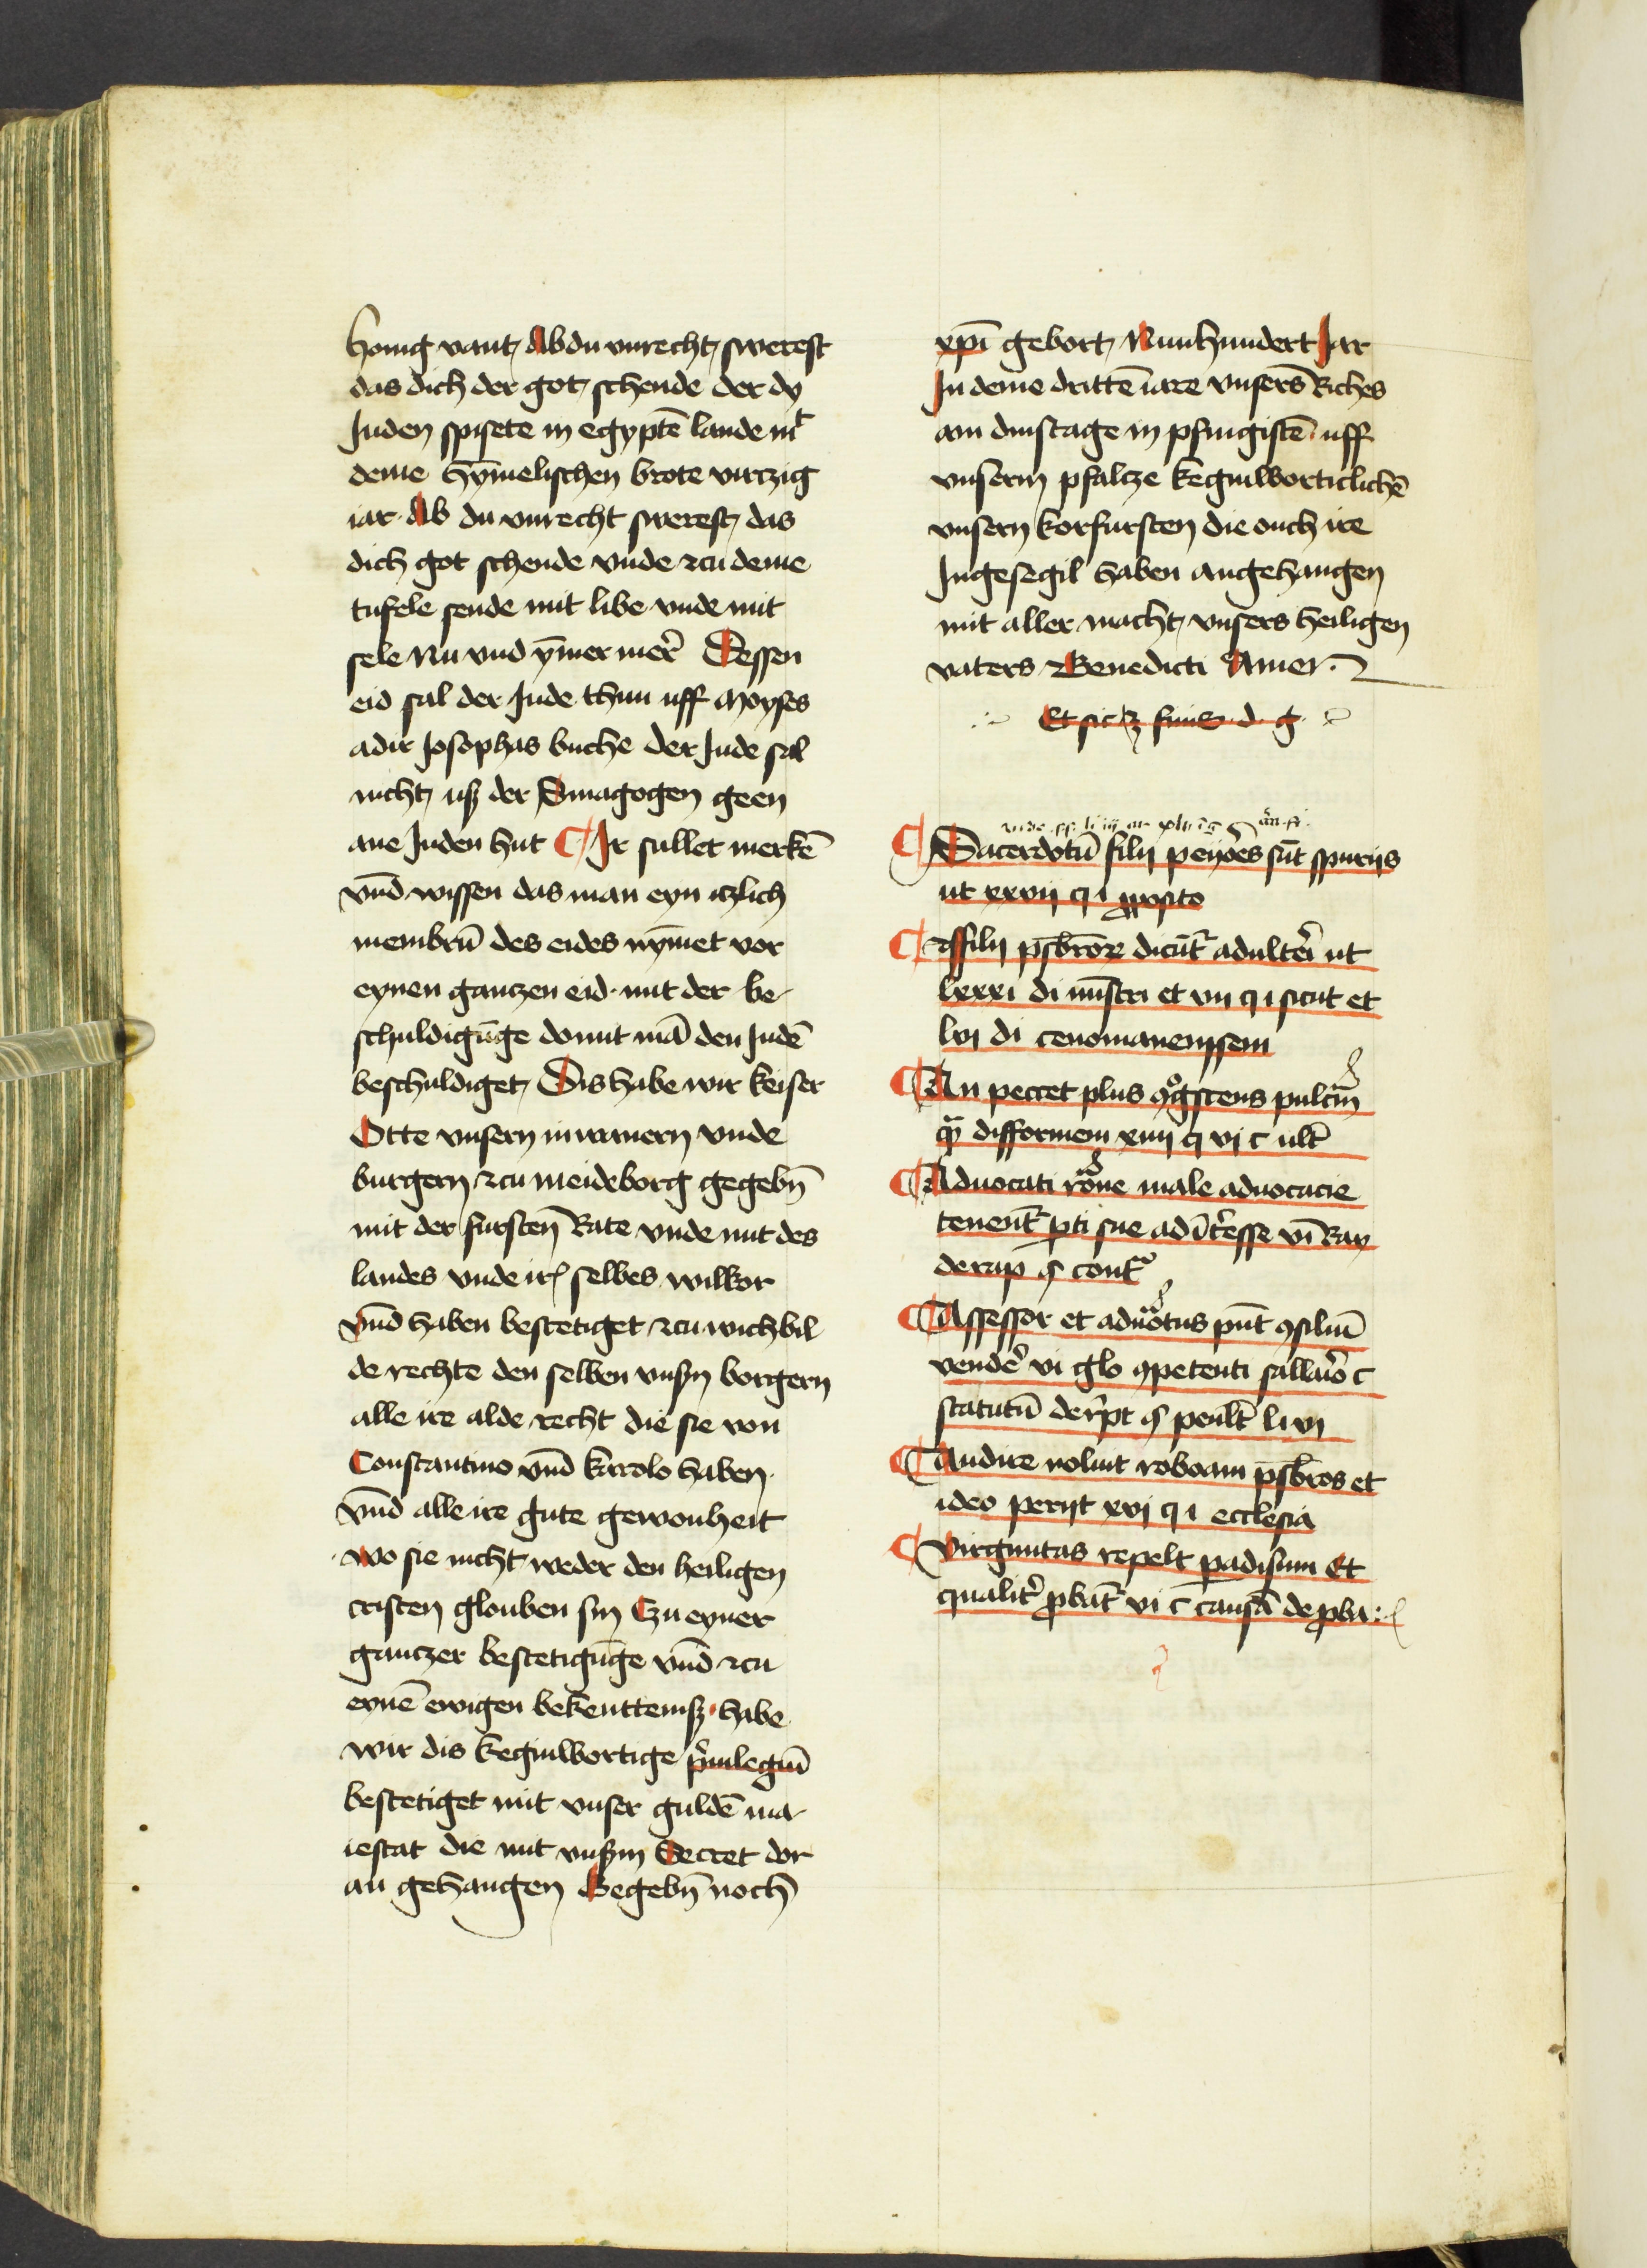 honig vant Ab du vnrecht swerest
das dich der got schende der dy
Juden spisete in egyptē lande mt
deme hȳmelischen brote virczig
iar Ab du vnrecht swerest das
dich got schende vnde zcu deme
tufele sende mit libe vnde mit
sele Nu vnd ȳmer mer Dessen
eid sal der Jude thun uff Moyses
adir Josophas buche der Jude sal
nicht uß der Sinagogen geen
ane Juden hut ¶ Ir sullet merkē
vnd wissen das man eyn iczlich
membrū des eides nȳmet vor
eynen ganczen eid mit der be-
schuldigūge domit mā den Judē
beschuldiget Dis habe wir keiser
Otte vnsern inwanern vnde
burgern zcu meideborg gegebn̄
mit der fursten Rate vnde mit des
landes vnde ir selbes wilkor
vnd haben bestetiget zcu wichbil
de rechte den selben vnsn̄ borgern
alle ire alde recht die sie von
Constantino vnd karolo haben
vnd alle ire gute gewonheit
wo sie nicht weder den heiligen
cristen glouben sin Czu eyner
ganczer bestetigūge vnd zcu
eynē ewigen bekenttenisz habe
wir dis keginwortige p̄uilegiū
bestetiget mit vnser guldē ma-
iestat die mit vnsm Secret dor
an gehangen Gegebn̄ noch
xpī gebort Nunhundert Jar
In deme drittē iare vnsers Riches
am dinstage in pfingistē uff
vnserm pfaltze keginworticlichē
vnsern korfursten die ouch ire
Ingesegil haben angehangen
mit aller macht vnsers heiligen
vaters Benedicti Amen
Et sic ꝫ finis d g
¶ Sacerdotū filij peiores sūt spurijs
ut xxvij q i pposito
¶ filij p̄sbrorꝫ dicūt adulteri ut
lxxxi di mīstri et vij q i sicut et
lvi di cenomanensem
¶ An peccet plus ꝯgscens pulcrā
qȝ difformem xiiij q vi c ult
¶ Aduocati rōne male aduocacie
tenent pti sue ad īteresse vi Ray
¶ Assessor et aduōtus pn̄t ꝯsiliū
vendē vi glo ꝯpetenti sallario c
¶ Audire noluit roboam p̄sbros et
ideo perijt xvi q i ecclesia
¶ Virginitas repelt padisum Et
qualit pbat vi c causā de pba